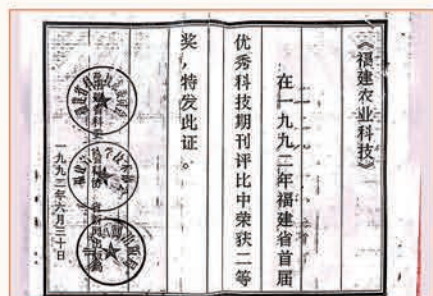 《福建农业科技》
在一九九二年福建省首届
优秀科技期刊评比中荣获二等
奖，特发此证。
一九九二年六月三十日